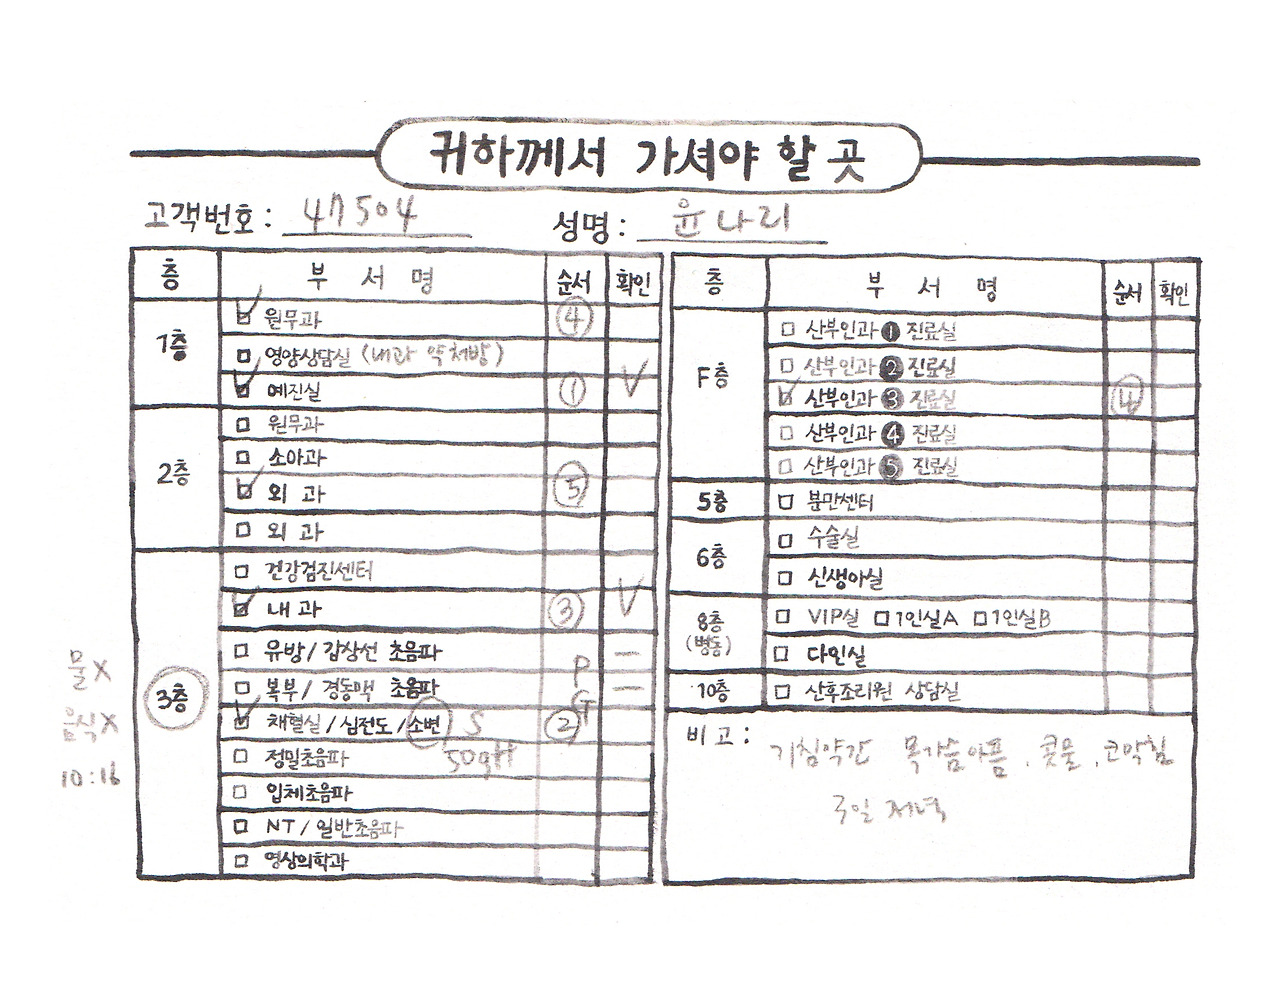 귀하께서 가셔야 할 곳
고객번호: 47504 성명: 윤나리
층 부서명 순서 확인
1층 원무과 ④
영양상담실 (내과 약처방)
예진실 ① V
2층 원무과
소아과
외 과 ⑤
외 과
3층 건강검진센터
내과 ③ V
유방/갑상선 초음파 —
복부/경동맥 초음파 P —
채혈실/심전도/소변 S ② G
정밀초음파 50g
입체초음파
NT/일반초음파
영상의학과
물X
음식X
10:16
층 부서명 순서 확인
F층 산부인과 ❶ 진료실
산부인과 ❷ 진료실
산부인과 ❸ 진료실 ④
산부인과 ❹ 진료실
산부인과 ❺ 진료실
5층 분만센터
6층 수술실
신생아실
8층 (병동) VIP실 1인실A 1인실B
다인실
10층 산후조리원 상담실
비고:
기침약간 목가슴아픔. 콧물. 코막힘
3일 저녁